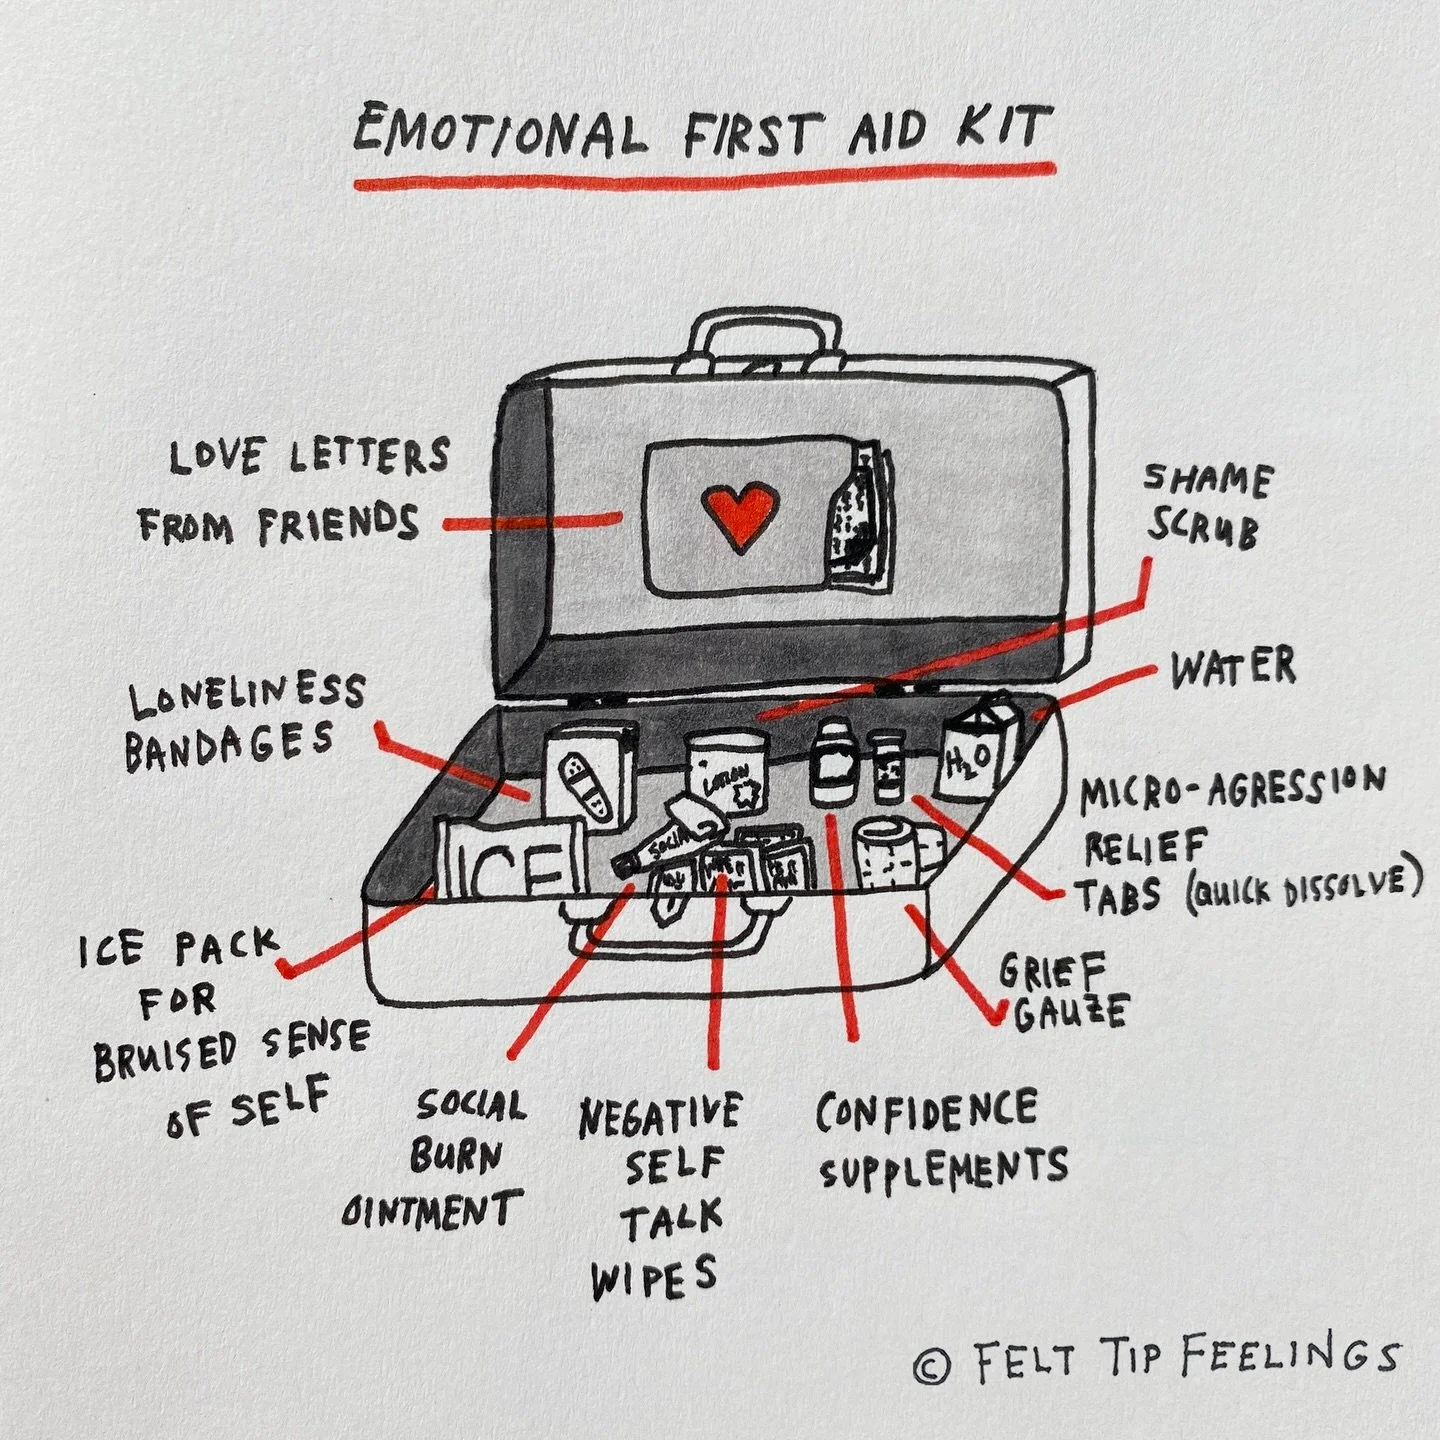 EMOTIONAL FIRST AID KIT
LOVE LETTERS
FROM FRIENDS
SHAME
SCRUB
WATER
LONELINESS
BANDAGES
LOTION
H2O
MICRO-AGRESSION
RELIEF
TABS (QUICK DISSOLVE)
SOCIAL
ICE
ICE PACK
FOR
BRUISED SENSE
OF SELF
GRIEF
GAUZE
SOCIAL
BURN
OINTMENT
NEGATIVE
SELF
TALK
WIPES
CONFIDENCE
SUPPLEMENTS
© FELT TIP FEELINGS